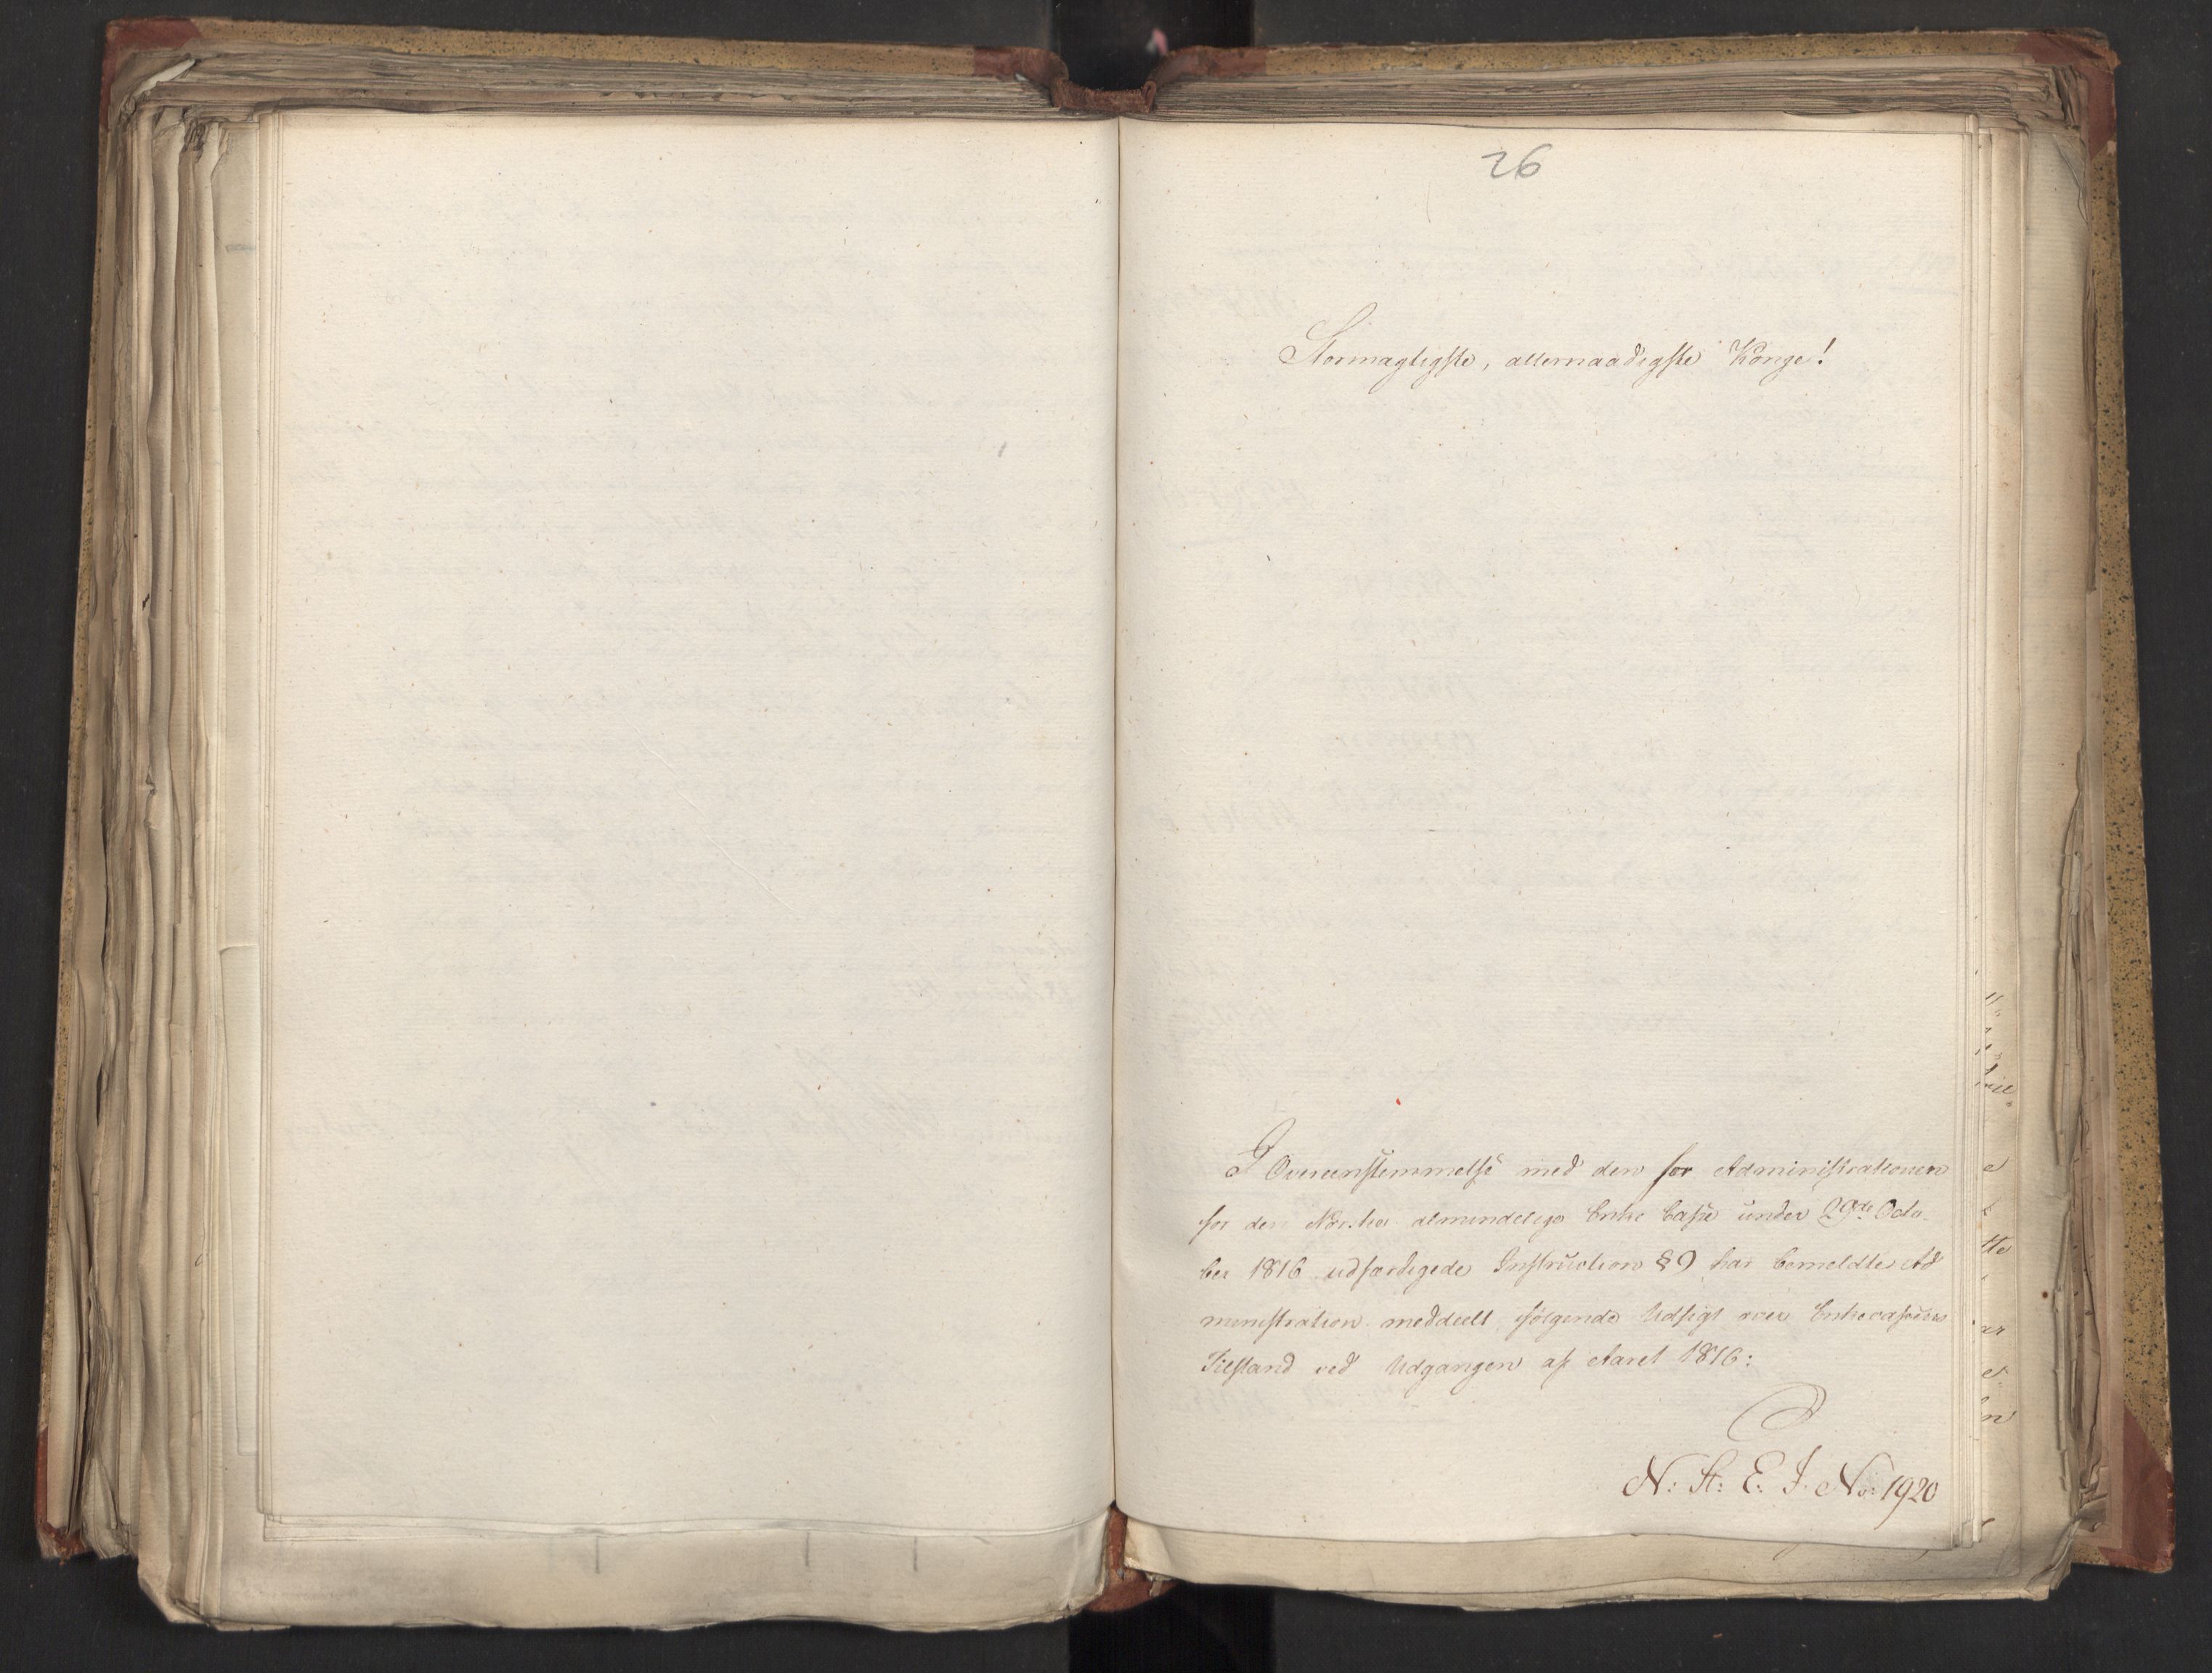 26
Stormægtigste, allernaadigste Konge!
I Overeenstemmelse med den for Administrationen
for den Norske almindelige Enke Casse under 29de Octo-
ber 1816 udfærdigede Instruction § 9 har bemeldte Ad
ministration meddeelt følgende Udsigt over Enkecassens
Tilstand ved Udgangen af Aaret 1816:
N: St: E. J. No: 1920